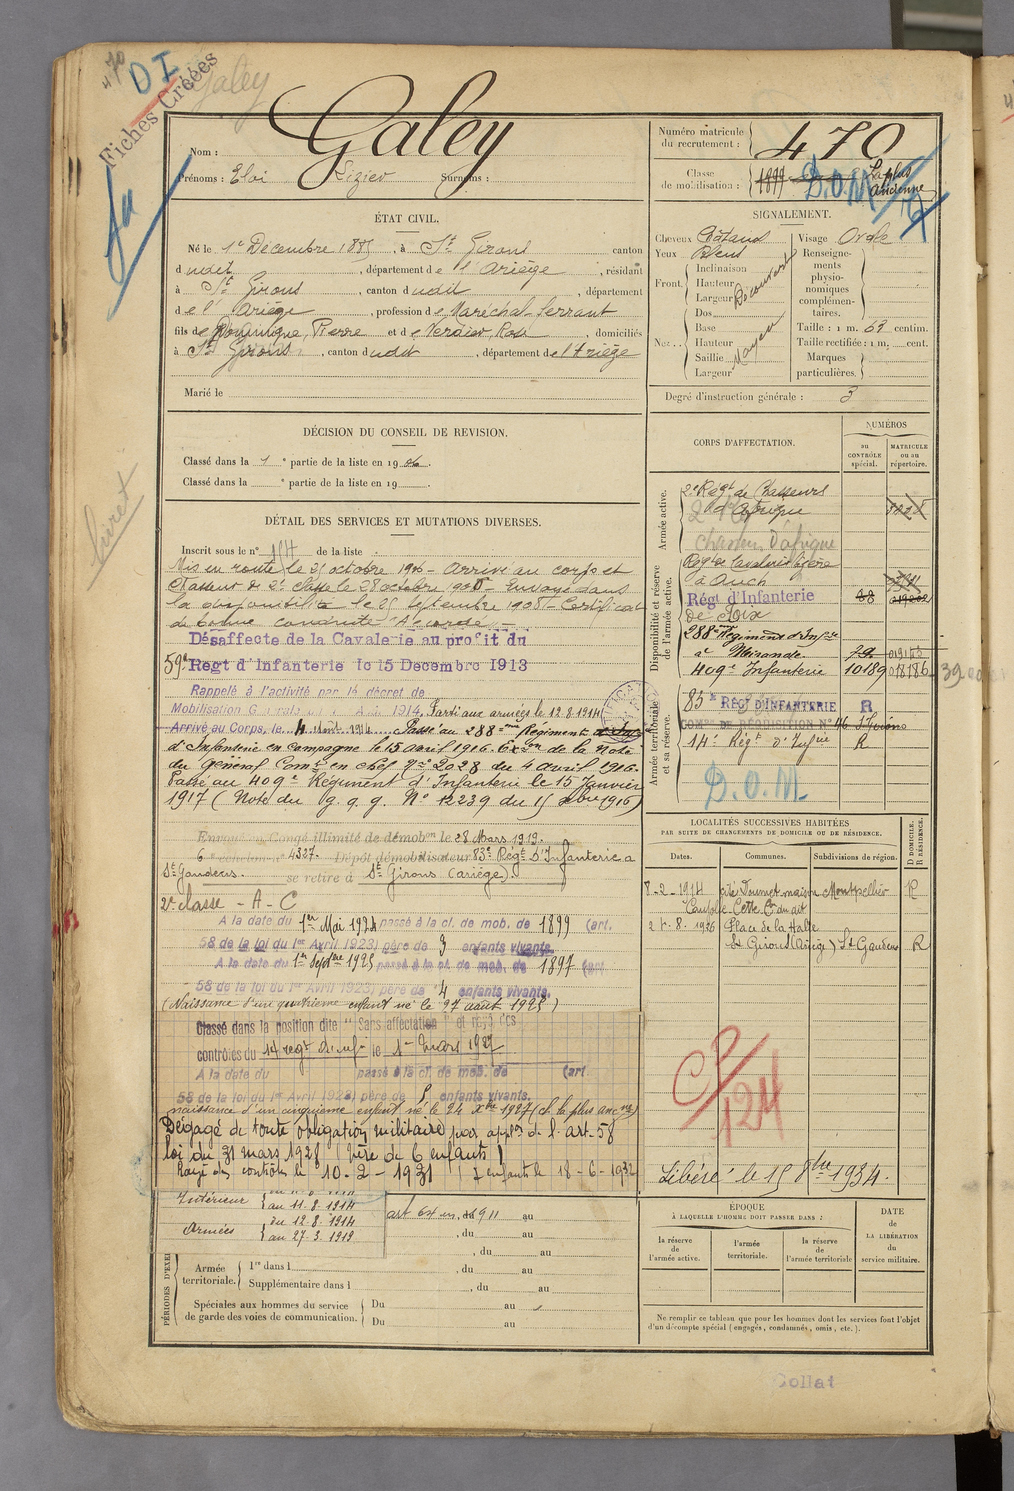 470
DI
Galey
Fiches Créées
Nom : Galey
Prénoms : Eloi Lizier Surnoms :
Numéro matricule du recrutement : 470
Classe de mobilisation : 1899 D.O.M La plus ancienne
ÉTAT CIVIL.
Né le 1er Decembre 1885, à St Girons canton
dudit, département de l'Ariège, résidant
à St Girons, canton dudit, département
de l'Ariège, profession de Maréchal-ferrant
fils de Dominique, Pierre et de Verdier, Rose, domiciliés
à St Girons, canton dudit, département de l'Ariège
Marié le
SIGNALEMENT.
Cheveux Châtains
Yeux Bleus
Front. Inclinaison
Hauteur
Largeur
Découvert
Nez. Dos
Base
Hauteur
Saillie
Largeur
Moyen
Visage Ovale
Renseignements physionomiques complémentaires.
Taille : 1 m. 69 centim.
Taille rectifiée : 1 m. cent.
Marques particulières.
Degré d'instruction générale : 3
DÉCISION DU CONSEIL DE REVISION.
Classé dans la 1 e partie de la liste en 1906.
Classé dans la e partie de la liste en 19
livret
DÉTAIL DES SERVICES ET MUTATIONS DIVERSES.
Inscrit sous le n° de la liste
Mis en route le octobre 1906 - Arrivé au corps et
Chasseur de 2e classe le 28 octobre 1906 - Envoyé dans
la disponibilité le 25 septembre 1908 - Certificat
de bonne conduite "Accordé" -
Désaffecté de la Cavalerie au profit du
59e Régt d'Infanterie le 15 Decembre 1913
Rappelé à l'activité par le décret de
Mobilisation Générale 1914. Parti aux armées le 12.8.1914
Arrivé au Corps, le 4 août 1914 Passé au 288ème Régiment d'Inf
d'Infanterie en campagne le 15 avril 1916. Exon de la Note
du Général Comt en chef No 2028 du 4 avril 1916.
Passé au 409e Régiment d'Infanterie le 15 Janvier
1917 ( Note du g. q. g. No 12239 du 15 xbre 1916)
Envoyé en Congé illimité de démobon le 28 Mars 1919.
6e échelon n° 4327. Dépôt démobilisateur 83e Régt D'Infanterie a
St Gaudens. se retire à St Girons (ariège).
2e classe - A - C
A la date du 1er Mai 1924 passé à la cl. de mob. de 1899 (art.
58 de la loi du 1er Avril 1923) père de 3 enfants vivants.
A la date du 1er Septbre 1925 passé à la cl. de mob. de 1897 (art
58 de la loi du 1er Avril 1923) père de 4 enfants vivants.
(Naissance d'un quatrième enfant né le 27 août 1925)
Classé dans la position dite "Sans affectation" et rayé des
contrôles du 14 regt d'inf le 1er mars 1927
A la date du passé à la cl. de mob. de (art.
58 de la loi du 1er Avril 1923) père de 5 enfants vivants.
naissance d'un cinquième enfant né le 24 xbre 1927 (cl. la plus ancne)
Dégagé de toute obligation militaire par appon de l'art. 58
loi du 31 mars 1928 (Père de 6 enfants)
Rayé des contrôles le 10-2-1931 (7 enfants le 18-6-1932
CORPS D'AFFECTATION.
NUMÉROS
au CONTRÔLE spécial.
MATRICULE ou au répertoire.
Armée active.
2e Régt de Chasseurs
d'Afrique
Chasseurs d'afrique
Disponibilité et réserve de l'armée active.
Régt de Cavalerie légère
à Auch
Régt d'Infanterie
de Foix
288ème Régiment d'Infrie
à Mirande
409e Infanterie 10189 018186
Armée territoriale et sa réserve.
83e RÉGT D'INFANTERIE R
COMon DE RÉQUISITION N° 46 St Girons
14e Régt d'Infrie R
D.O.M.
LOCALITÉS SUCCESSIVES HABITÉES
PAR SUITE DE CHANGEMENTS DE DOMICILE OU DE RÉSIDENCE.
Dates. Communes. Subdivisions de région.
D DOMICILE. R RÉSIDENCE.
8-2-1914 cité Doumet maison Montpellier R
Cette Con dudit
27.8.1926 Place de la Halle
St Girons (Ariège) St Gaudens R
CP/124
Libéré le 15 8bre 1934.
Intérieur au 11.8.1914
Armées du 12.8.1914
au 27.3.1919
1911 au
, du au
, du au
PÉRIODES D'EXER
Armée territoriale. 1re dans l , du au
Supplémentaire dans l , du au
Spéciales aux hommes du service de garde des voies de communication. Du au
Du au
EPOQUE
À LAQUELLE L'HOMME DOIT PASSER DANS :
la réserve de l'armée active.
l'armée territoriale.
la réserve de l'armée territoriale
DATE de LA LIBÉRATION du service militaire.
Ne remplir ce tableau que pour les hommes dont les services font l'objet
d'un décompte spécial (engagés, condamnés, omis, etc.).
Collat